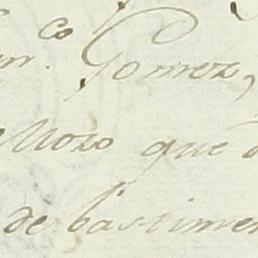 co
Gomez,
Mozo que
de bastimen